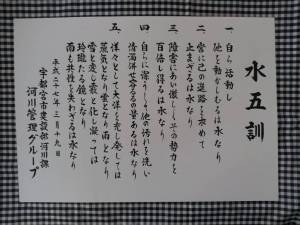 水五訓
一 自ら活動し
他を動かしむるは水なり
二 常に己の進路を求めて
止まざるは水なり
三 障害にあい激しくその勢力を
百倍し得るは水なり
四 自ら潔うして他の汚れを洗い
清濁併せ容るるの量あるは水なり
五 洋々として大洋を充し発しては
蒸気となり雲となり雨となり
雪と変し霰と化し凝っては
玲瓏たる鏡となり
而も其性を失わざるは水なり
平成二十七年三月十九日
宇都宮市建設部河川課
河川管理グループ